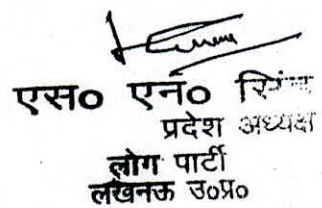 एस० एन० सिंह
प्रदेश अध्यक्ष
लोग पार्टी
लखनऊ उ०प्र०